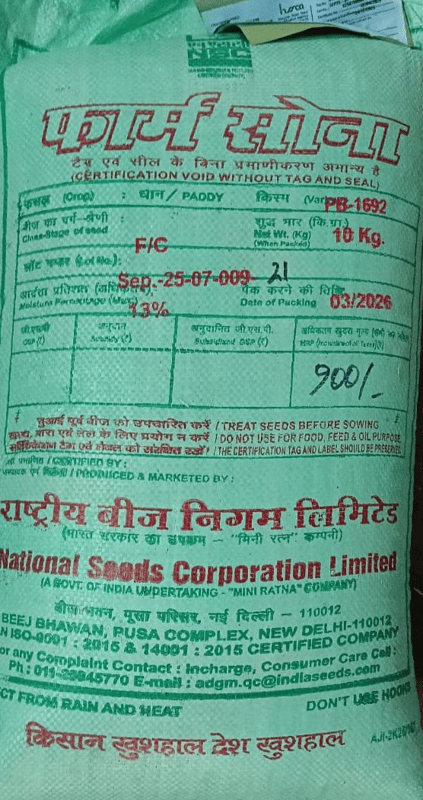 NSC
फार्म सोना
टैग एवं सील के बिना प्रमाणीकरण अमान्य है
(CERTIFICATION VOID WITHOUT TAG AND SEAL)
फसल (Crop) : धान / PADDY किस्म (Var PB-1692
बीज का वर्ग-श्रेणी : शुद्ध भार (कि.ग्रा.)
Class-Stage of seed F/C Net Wt. (Kg) 10 Kg.
(When Packed)
लॉट नम्बर (Lot No.): Sep.-25-07-009-21
आर्द्रता प्रतिशत (अधिकतम) पैक करने की तिथि
Moisture Percentage (Max.) 13% Date of Packing 03/2026
जी.एस.पी. अनुदान अनुदानित जी.एस.पी. अधिकतम खुदरा मूल्य
GSP (₹) Subsidy (₹) Subsidised GSP (₹) MRP (Inclusive of all Taxes) (₹)
900/-
बुआई पूर्व बीज को उपचारित करें / TREAT SEEDS BEFORE SOWING
खाद्य, चारा एवं तेल के लिए प्रयोग न करें / DO NOT USE FOR FOOD, FEED & OIL PURPOSE
सर्टिफिकेशन टैग एवं लेबल को संरक्षित रखें / THE CERTIFICATION TAG AND LABEL SHOULD BE PRESERVED
/ CERTIFIED BY :
/ PRODUCED & MARKETED BY :
राष्ट्रीय बीज निगम लिमिटेड
(भारत सरकार का उपक्रम – "मिनी रत्न" कम्पनी)
National Seeds Corporation Limited
(A GOVT. OF INDIA UNDERTAKING - "MINI RATNA" COMPANY)
बीज भवन, पूसा परिसर, नई दिल्ली – 110012
BEEJ BHAWAN, PUSA COMPLEX, NEW DELHI-110012
N ISO-9001 : 2015 & 14001 : 2015 CERTIFIED COMPANY
or any Complaint Contact : Incharge, Consumer Care Cell :
Ph : 011-25845770 E-mail : adgm.qc@indiaseeds.com
CT FROM RAIN AND HEAT DON'T USE HOOKS
किसान खुशहाल देश खुशहाल